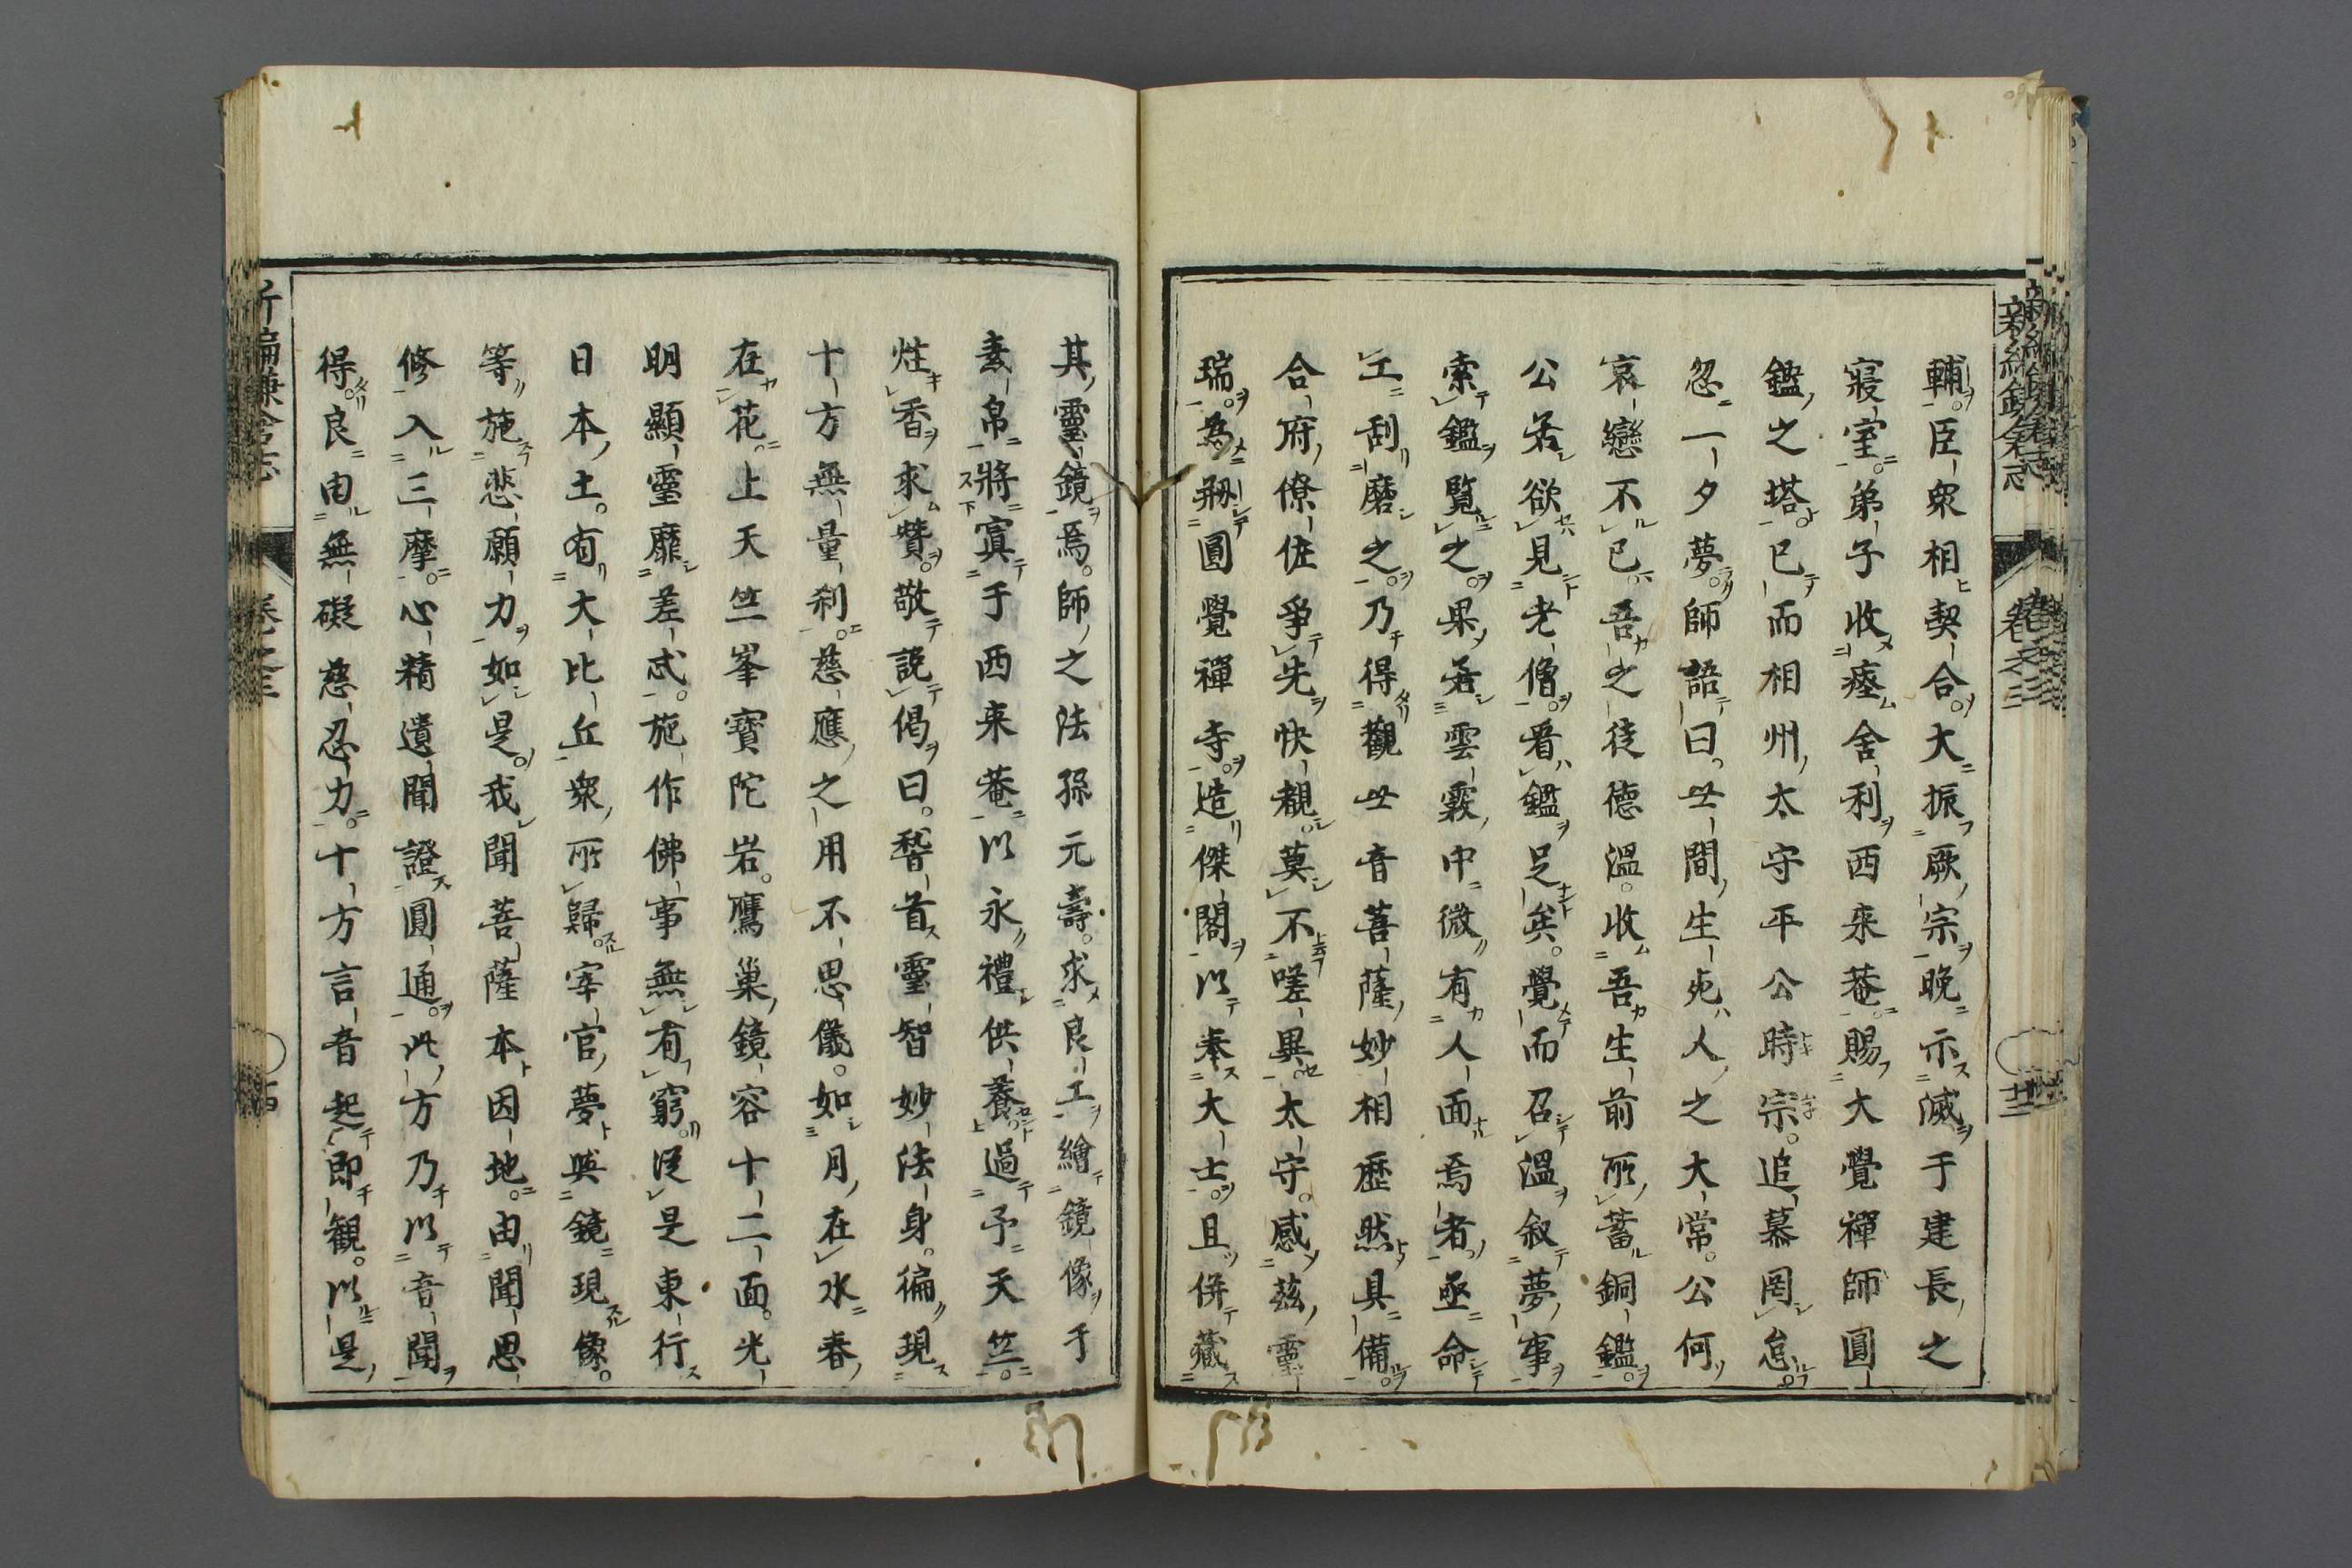 輔臣衆相契合大振厥宗晚示滅于建長之
寢室弟子收瘞舍利西来菴賜大覺禪師圓
鑑之塔已而相州太守平公時宗追慕罔怠
忽一夕夢師語曰世間生死人之大常公何
哀戀不已吾之徒德溫收吾生前所蓄銅鑑
公若欲見老僧看鑑足矣覺而召溫叙夢事
索鑑覧之果若雲霧中微有人面焉者亟命
工刮磨之乃得觀世音菩薩妙相歷然具備
合府僚佐爭先快覩莫不嗟異太守感茲靈
瑞為剏圓覺禪寺造傑閣以奉大士且併藏
其靈鏡焉師之法孫元壽求良工繪鏡像于
素帛將寘于西来菴以永禮供養過予天竺
炷香求賛敬説偈曰稽首靈智妙法身徧現
十方無量刹慈應之用不思儀如月在水春
在花上天竺峯寶陀岩鷹巢鏡容十二面光
明顯靈靡差忒施作佛事無有窮從是東行
日本土有大比丘衆所歸宰官夢與鏡現像
等施悲願力如是我聞菩薩本因地由聞思
修入三摩心精遺聞證圓通此方乃以音聞
得良由無礙慈忍力十方言音起即観以是
新編鎌倉志 卷之三